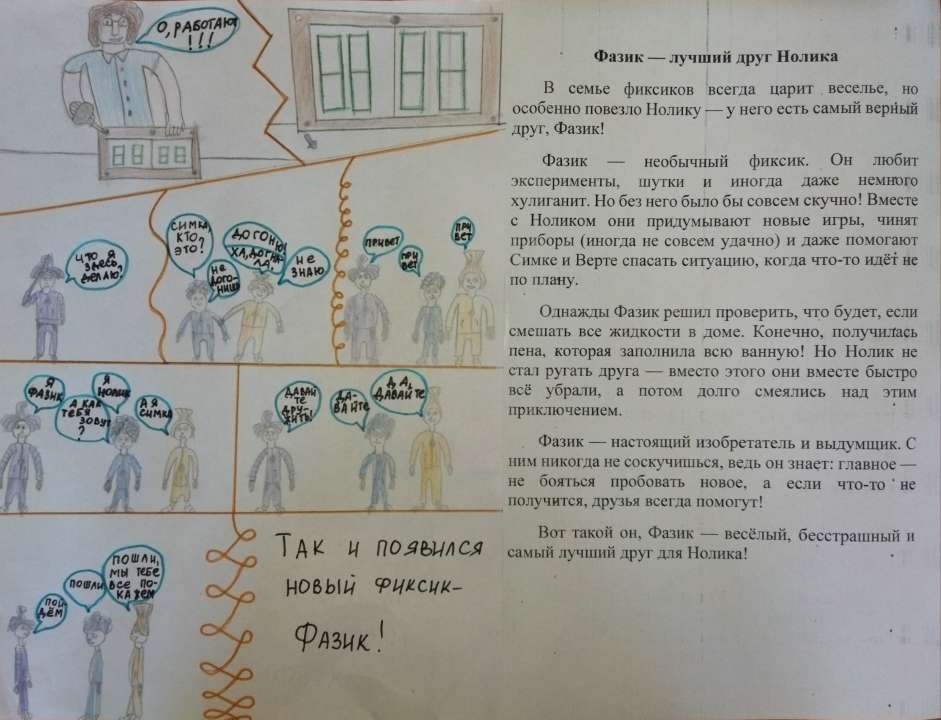 О, РАБОТАЮТ
!!!
ЧТО Я
ЗДЕСЬ
ДЕЛАЮ?
СИМКА,
КТО
ЭТО?
НЕ
ДОГО-
НИШЬ
ДОГОНЮ!
ХА, ДОГНА-
ЛА!
НЕ
ЗНАЮ
ПРИВЕТ
ПРИ
ВЕТ
ПРИ
ВЕТ
Я
ФАЗИК
А КАК
ТЕБЯ
ЗОВУТ
?
Я
НОЛИК
А Я
СИМКА
ДАВАЙ
ТЕ
ДРУ-
ЖИТЬ!
ДА-
ВАЙТЕ
ДА,
ДАВАЙТЕ
ПОЙ
ДЁМ
ПОШЛИ
ПОШЛИ,
МЫ ТЕБЕ
ВСЕ ПО-
КАЖЕМ
ТАК И ПОЯВИЛСЯ
НОВЫЙ ФИКСИК-
ФАЗИК!
Фазик — лучший друг Нолика
В семье фиксиков всегда царит веселье, но
особенно повезло Нолику — у него есть самый верный
друг, Фазик!
Фазик — необычный фиксик. Он любит
эксперименты, шутки и иногда даже немного
хулиганит. Но без него было бы совсем скучно! Вместе
с Ноликом они придумывают новые игры, чинят
приборы (иногда не совсем удачно) и даже помогают
Симке и Верте спасать ситуацию, когда что-то идёт не
по плану.
Однажды Фазик решил проверить, что будет, если
смешать все жидкости в доме. Конечно, получилась
пена, которая заполнила всю ванную! Но Нолик не
стал ругать друга — вместо этого они вместе быстро
всё убрали, а потом долго смеялись над этим
приключением.
Фазик — настоящий изобретатель и выдумщик. С
ним никогда не соскучишься, ведь он знает: главное —
не бояться пробовать новое, а если что-то не
получится, друзья всегда помогут!
Вот такой он, Фазик — весёлый, бесстрашный и
самый лучший друг для Нолика!